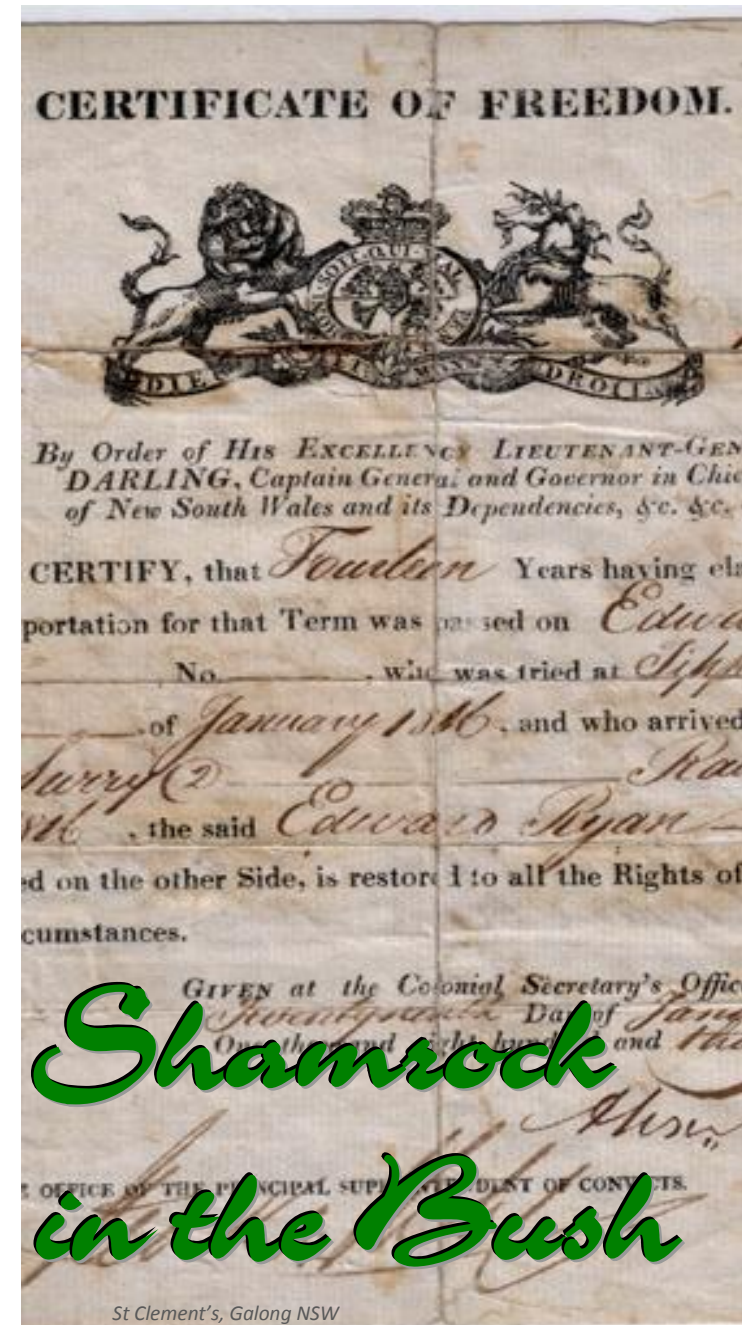 CERTIFICATE OF FREEDOM.
SOIT QUI MAL
DIEU ET MON DROIT
By Order of HIS EXCELLENCY LIEUTENANT-GEN
DARLING, Captain General and Governor in Chie
of New South Wales and its Dependencies, &c. &c.
CERTIFY, that Fourteen Years having ela
portation for that Term was passed on Edwa
No. , who was tried at Tipp
of January 1816, and who arrived
Surry (2) Ra
1816, the said Edward Ryan
ed on the other Side, is restored to all the Rights of
cumstances.
GIVEN at the Colonial Secretary's Offic
Day of Janu
One thousand eight hundred and thi
Shamrock
OFFICE OF THE PRINCIPAL SUPERINTENDENT OF CONVICTS.
in the Bush
St Clement's, Galong NSW